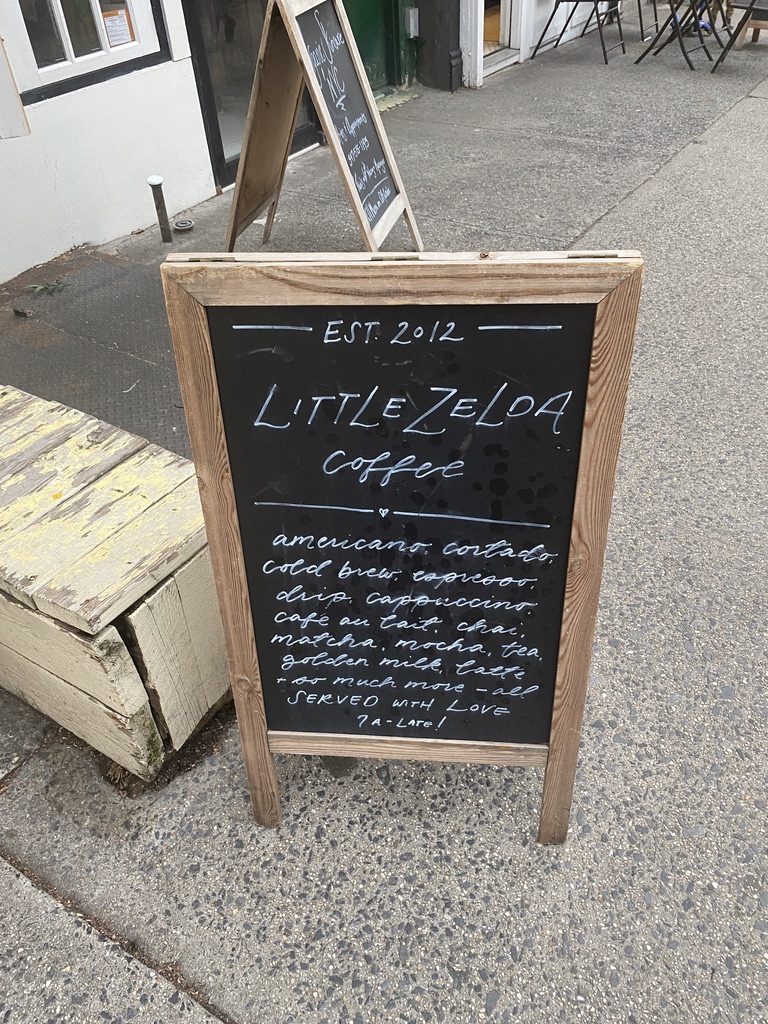 NYC
EST. 2012
LITTLE ZELDA
coffee
americano, cortado,
cold brew, espresso,
drip, cappuccino,
café au lait, chai,
matcha, mocha, tea,
golden milk, latte
+ so much more - all
SERVED WITH LOVE
7A-LATE!